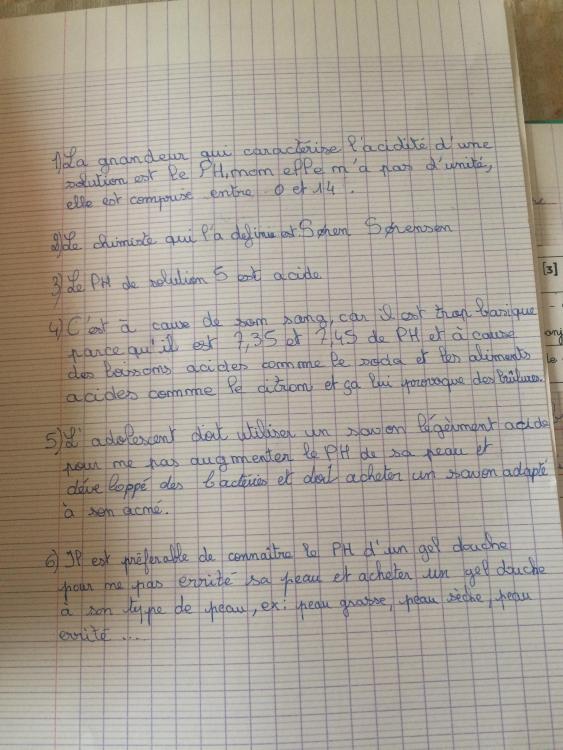 1) La grandeur qui caractérise l'acidité d'une
solution est le PH, mom elle m'a pas d'unité,
elle est comprise entre 0 et 14.
2) Le chimiste qui l'a define est Søren Sørensen
3) Le PH de solution S est acide
4) C'est à cause de som sang, car il est trop basique
parce qu'il est 7,35 et 7,45 de PH et à cause
des boissons acides comme le soda et les aliments
acides comme le citron et ça lui provoque des brûlures.
5) L'adolescent doit utiliser un savon légèrment acide
pour me pas augmenter le PH de sa peau et
développé des bactéries et doit acheter un savon adapté
à son acné.
6) Il est préférable de connaître le PH d'un gel douche
pour me pas errité sa peau et acheter un gel douche
à son type de peau, ex: peau grasse, peau sèche, peau
errité ...
[3]